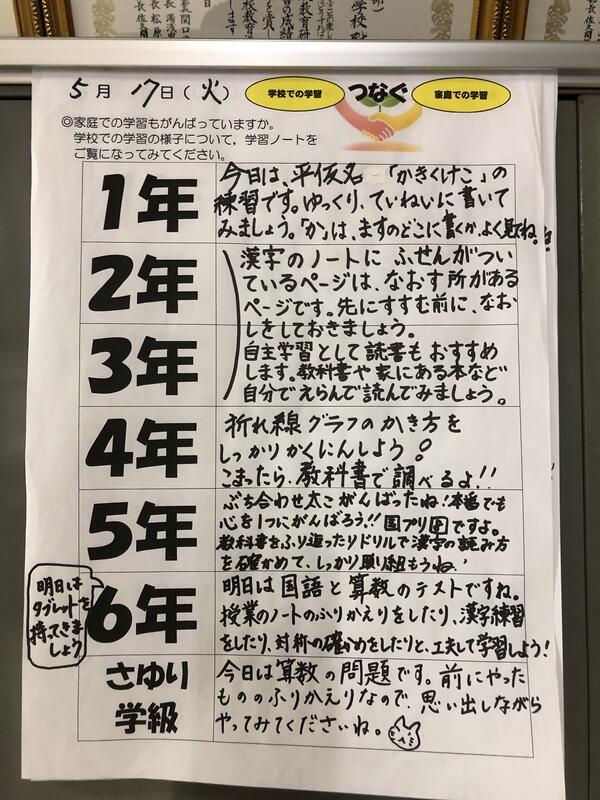 5月 17日(火)
学校での学習 つなぐ 家庭での学習
◎家庭での学習もがんばっていますか。
学校での学習の様子について，学習ノートを
ご覧になってみてください。
1年
今日は、平仮名 「かきくけこ」の
練習です。ゆっくり、ていねいに書いて
みましょう。「か」は、ますのどこに書くか、よく見てね。
2年
3年
漢字のノートに ふせんがつい
ているページは、なおす所がある
ページです。先にすすむ前に、なお
しをしておきましょう。
自主学習として読書も おすすめ
します。教科書や家にある本など
自分でえらんで読んでみましょう。
4年
折れ線グラフのかき方を
しっかりかくにんしよう。
こまったら、教科書で調べるよ!!
5年
ぶち合わせ太こがんばったね!本番でも
心を1つにがんばろう!! 国プリ ですよ。
教科書をふり返ったりドリルで漢字の読み方
を確かめて、しっかり取り組もうね!
6年
明日は国語と算数のテストですね。
授業のノートのふりかえりをしたり、漢字練習
をしたり、対称の確かめをしたりと、工夫して学習しよう!
明日は
タブレットを
持ってきま
しょう
さゆり
学級
今日は算数の問題です。前にやった
もののふりかえりなので、思い出しながら
やってみてくださいね。